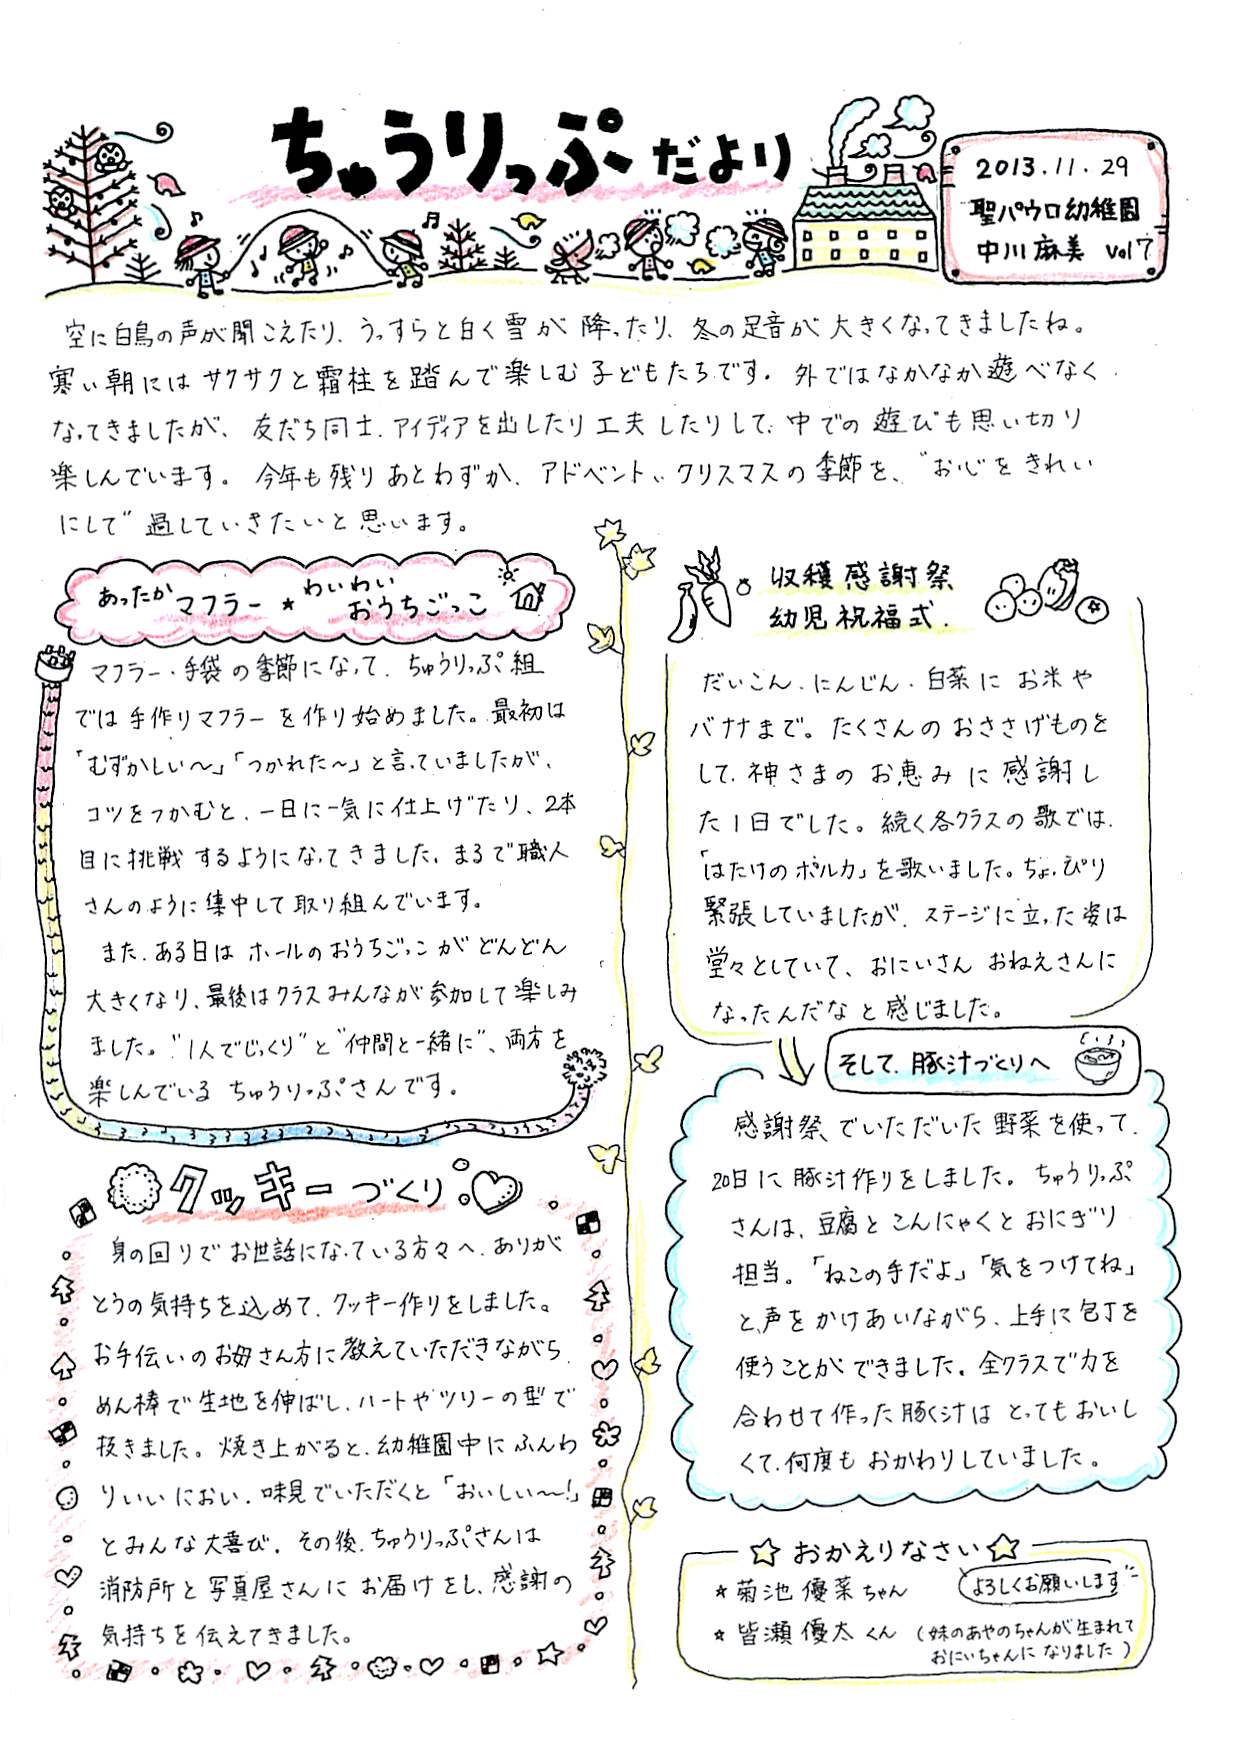 ちゅうりっぷだより
2013.11.29
聖パウロ幼稚園
中川麻美 vol7
空に白鳥の声が聞こえたり、うっすらと白く雪が降ったり、冬の足音が大きくなってきましたね。
寒い朝にはサクサクと霜柱を踏んで楽しむ子どもたちです。外ではなかなか遊べなく
なってきましたが、友だち同士、アイディアを出したり工夫したりして、中での遊びも思い切り
楽しんでいます。今年も残りあとわずか、アドベント、クリスマスの季節を、"お心をきれい
にして"過していきたいと思います。
あったかマフラー★わいわいおうちごっこ
マフラー・手袋の季節になって、ちゅうりっぷ組
では手作りマフラーを作り始めました。最初は
「むずかしい〜」「つかれた〜」と言っていましたが、
コツをつかむと、一日に一気に仕上げたり、2本
目に挑戦するようになってきました。まるで職人
さんのように集中して取り組んでいます。
また、ある日はホールのおうちごっこがどんどん
大きくなり、最後はクラスみんなが参加して楽しみ
ました。"1人でじっくり"と"仲間と一緒に"、両方を
楽しんでいるちゅうりっぷさんです。
クッキーづくり
身の回りでお世話になっている方々へ、ありが
とうの気持ちを込めて、クッキー作りをしました。
お手伝いのお母さん方に教えていただきながら、
めん棒で生地を伸ばし、ハートやツリーの型で
抜きました。焼き上がると、幼稚園中にふんわ
りいいにおい、味見でいただくと「おいしい〜!」
とみんな大喜び。その後、ちゅうりっぷさんは
消防所と写真屋さんにお届けをし、感謝の
気持ちを伝えてきました。
収穫感謝祭
幼児祝福式.
だいこん、にんじん、白菜にお米や
バナナまで。たくさんのおささげものを
して、神さまのお恵みに感謝し
た1日でした。続く各クラスの歌では、
「はたけのポルカ」を歌いました。ちょっぴり
緊張していましたが、ステージに立った姿は
堂々としていて、おにいさんおねえさんに
なったんだなと感じました。
そして、豚汁づくりへ
感謝祭でいただいた野菜を使って、
20日に豚汁作りをしました。ちゅうりっぷ
さんは、豆腐とこんにゃくとおにぎり
担当。「ねこの手だよ」「気をつけてね」
と声をかけあいながら、上手に包丁を
使うことができました。全クラスで力を
合わせて作った豚汁はとってもおいし
くて、何度もおかわりしていました。
☆おかえりなさい☆
★菊池優菜ちゃん
よろしくお願いします
★皆瀬優太くん（妹のあやのちゃんが生まれて
おにいちゃんになりました）